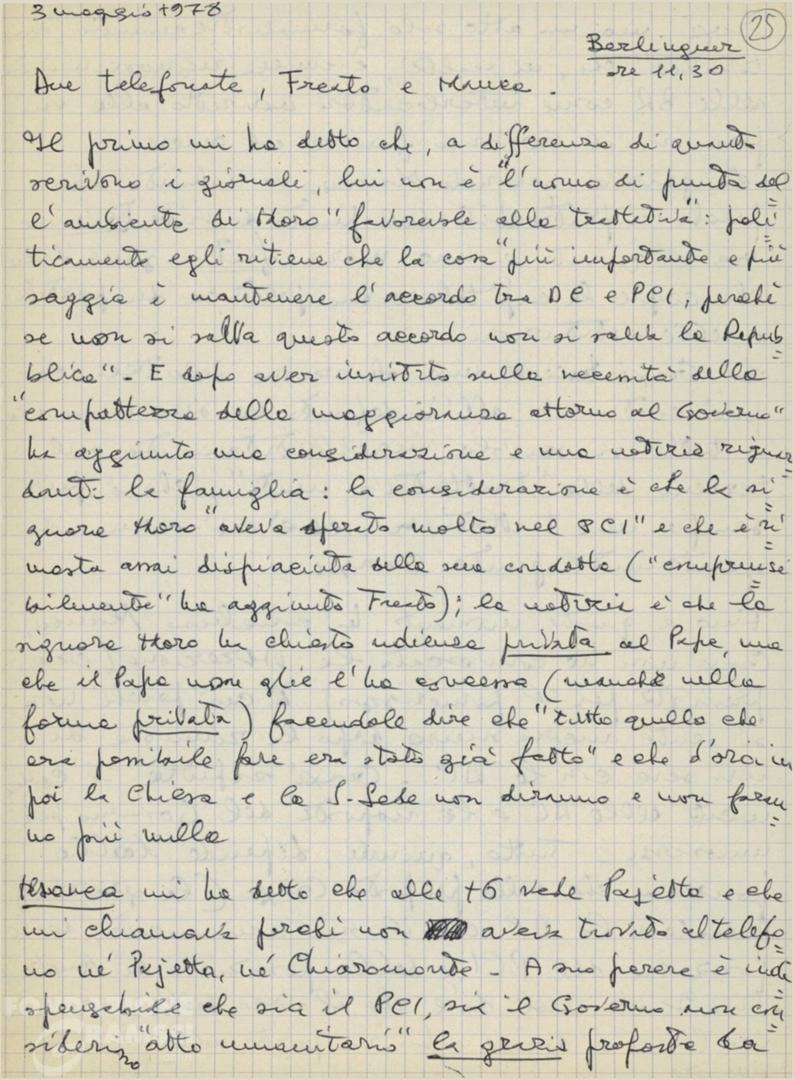 3 maggio 1978
25
Berlinguer
ore 11,30
Due telefonate, Freato e Manca.
Il primo mi ha detto che, a differenza di quanto
scrivono i giornali, lui non è "l'uomo di punta del
l'ambiente di Moro" favorevole alla trattativa": poli
ticamente egli ritiene che la cosa "più importante e più
saggia è mantenere l'accordo tra DC e PCI, perché
se non si salva questo accordo non si salva la Repub
blica". E dopo aver insistito sulla necessità della
"compattezza della maggioranza attorno al Governo"
ha aggiunto una considerazione e una notizia riguar
danti la famiglia: la considerazione è che la si
gnora Moro "aveva sperato molto nel PCI" e che è ri
masta assai dispiaciuta della sua condotta ("comprensi
bilmente" ha aggiunto Freato); la notizia è che la
signora Moro ha chiesto udienza privata al Papa, ma
che il Papa non glie l'ha concessa (neanche nella
forma privata) facendole dire che "tutto quello che
era possibile fare era stato già fatto" e che d'ora in
poi la Chiesa e la S. Sede non diranno e non faran
no più nulla
Manca mi ha detto che alle 16 vede Pajetta e che
mi chiamava perché non aveva trovato al telefo
no né Pajetta, né Chiaromonte. A suo parere è indi
spensabile che sia il PCI, sia il Governo non con
siderino "atto umanitario" la grazia proposta da